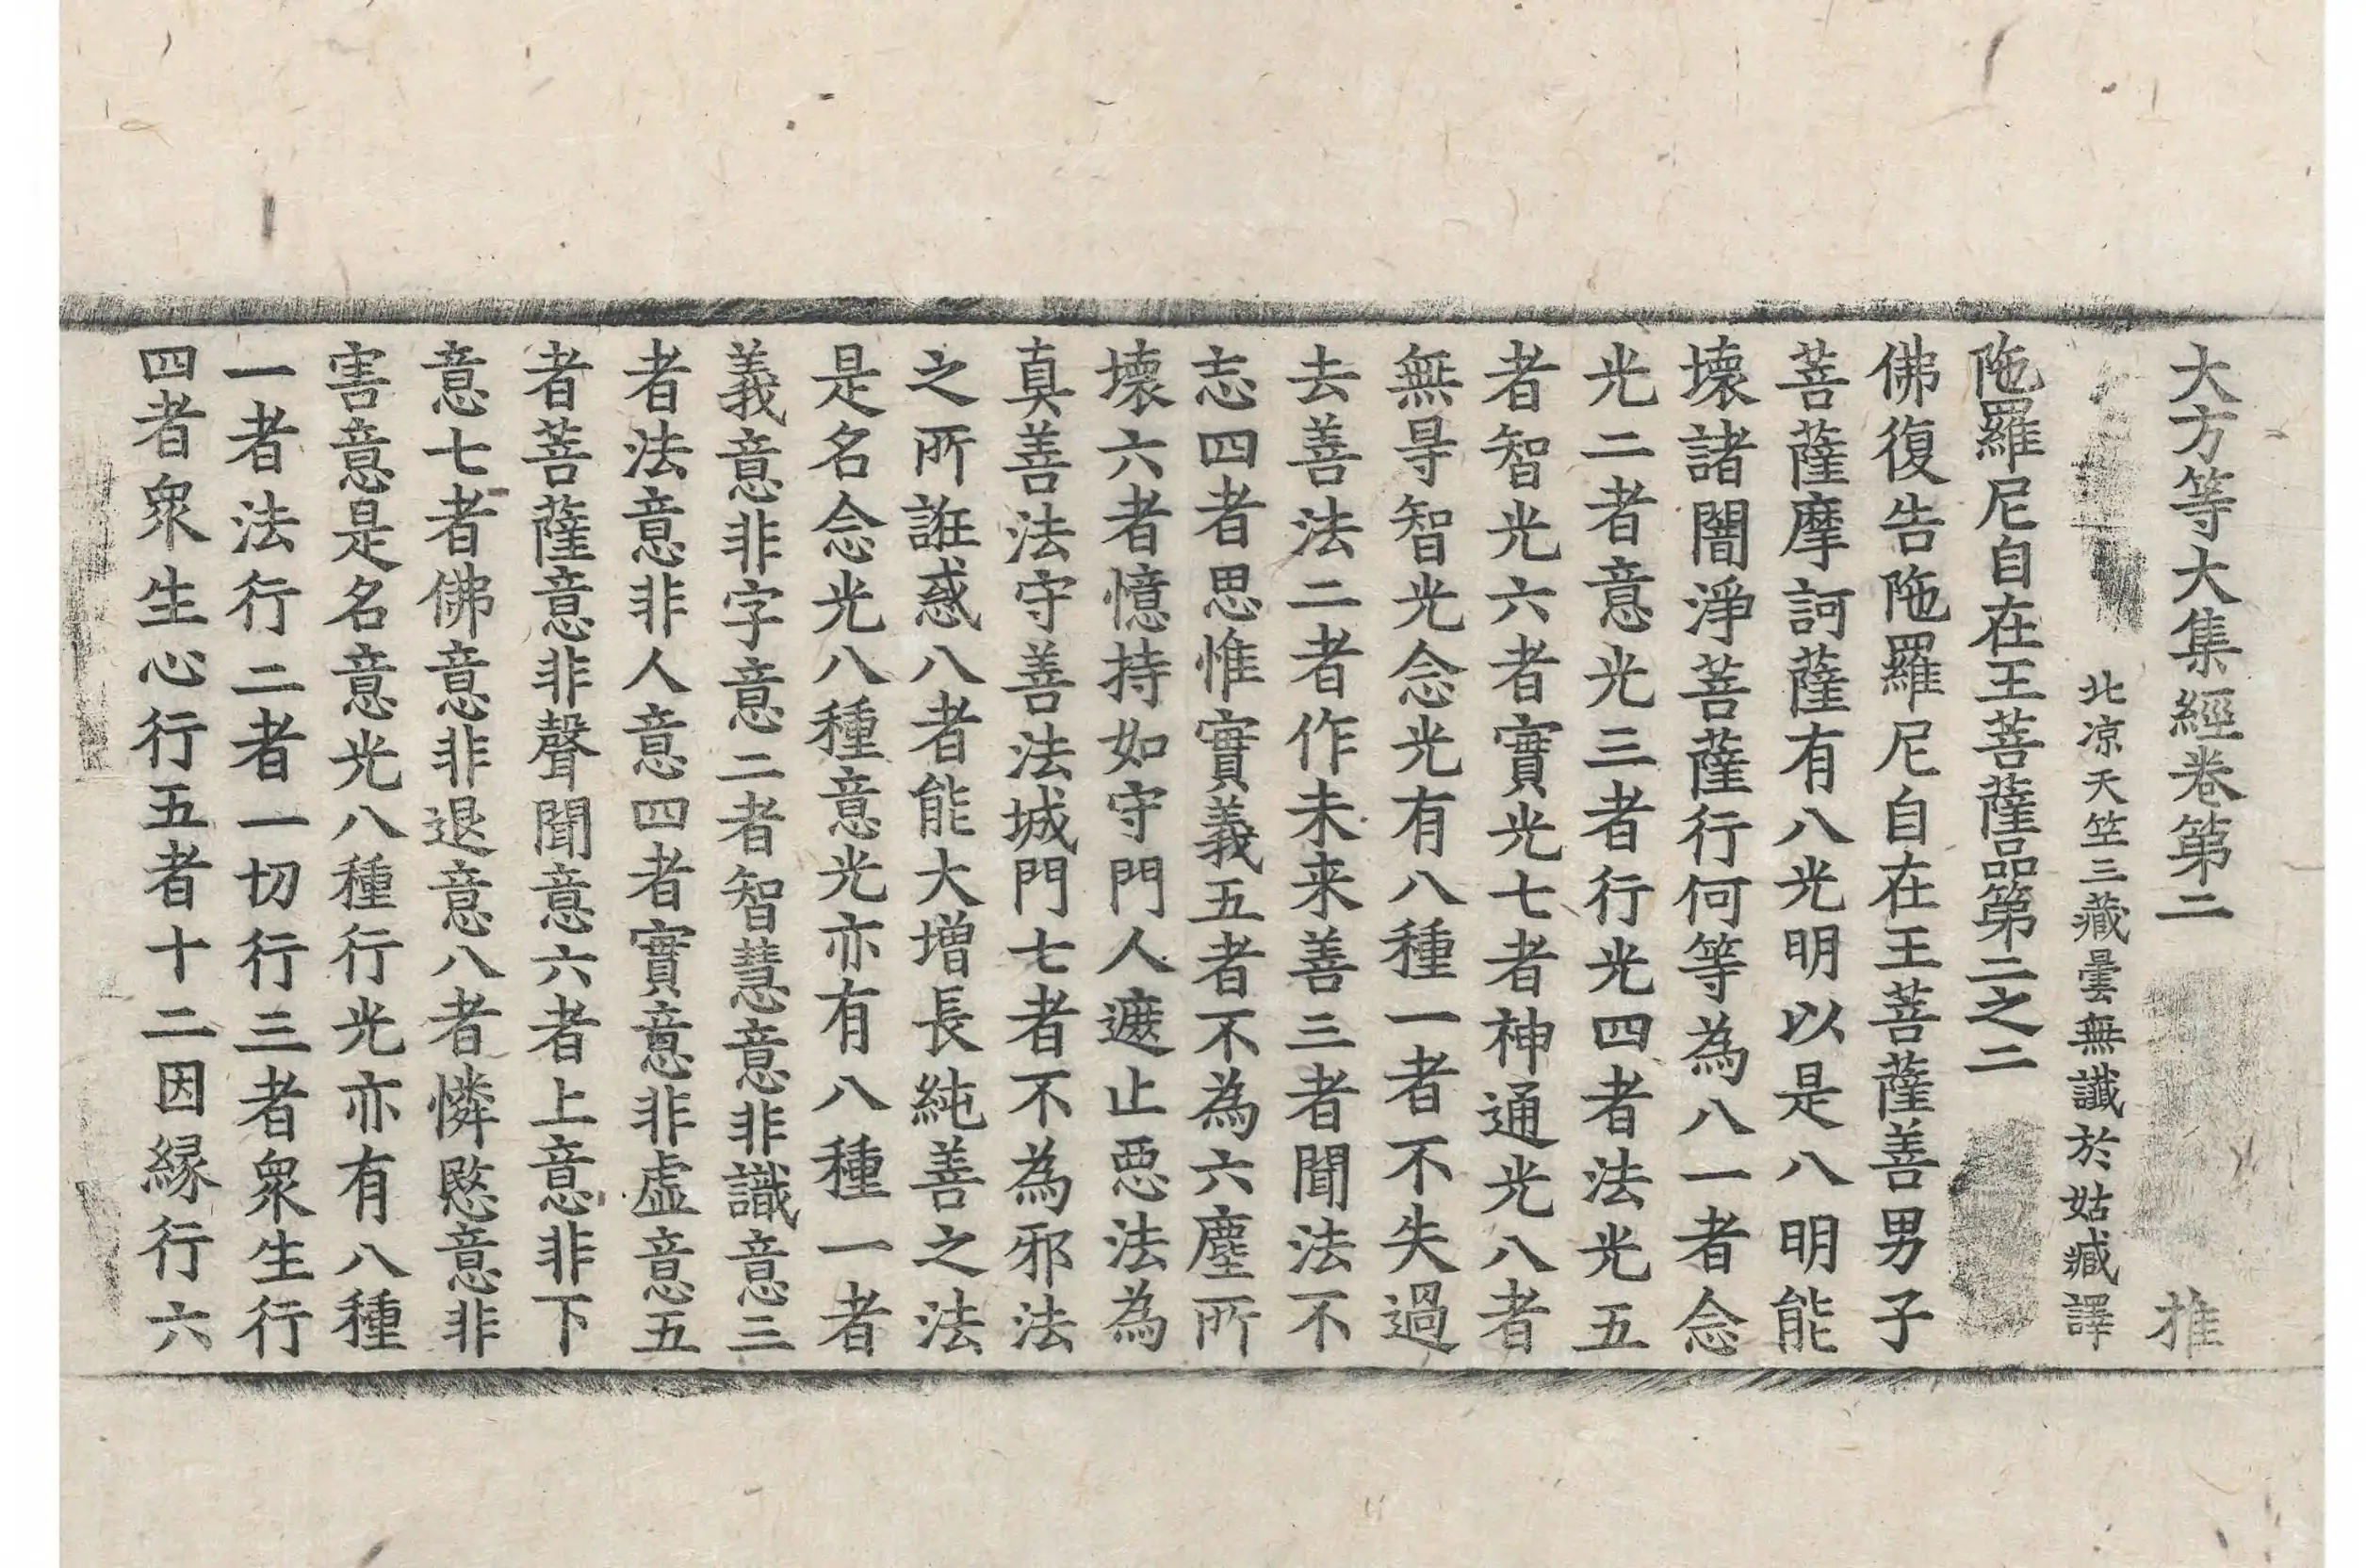 大方等大集經卷第二 推
北凉天竺三藏曇無讖於姑臧譯
陁羅尼自在王菩薩品第二之二
佛復告陁羅尼自在王菩薩善男子
菩薩摩訶薩有八光明以是八明能
壞諸闇淨菩薩行何等為八一者念
光二者意光三者行光四者法光五
者智光六者實光七者神通光八者
無㝵智光念光有八種一者不失過
去善法二者作未来善三者聞法不
志四者思惟實義五者不為六塵所
壞六者憶持如守門人遮止惡法為
真善法守善法城門七者不為邪法
之所誑惑八者能大增長純善之法
是名念光八種意光亦有八種一者
義意非字意二者智慧意非識意三
者法意非人意四者實意非虛意五
者菩薩意非聲聞意六者上意非下
意七者佛意非退意八者憐愍意非
害意是名意光八種行光亦有八種
一者法行二者一切行三者衆生行
四者衆生心行五者十二因縁行六